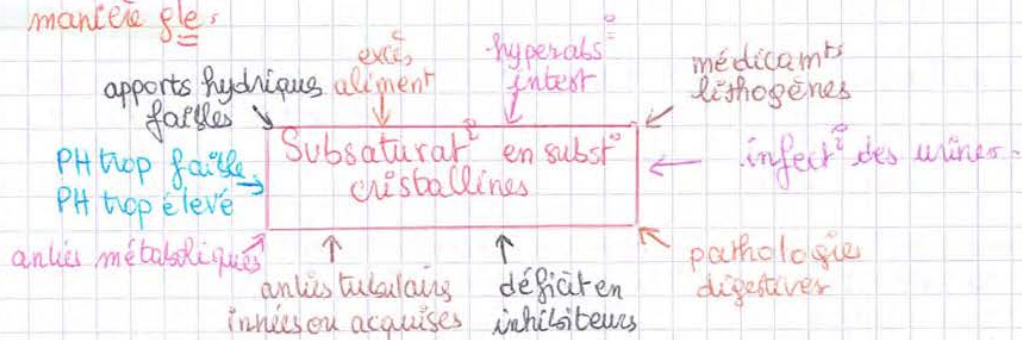 manière gle :
apports hydriques
faibles
excès
aliment
hyperabs°
intest
médicamts
lithogènes
PH trop faible
PH trop élevé
Subsaturat° en subst°
cristallines
infect° des urines.
anlies métaboliques
anlies tubulaires
innées ou acquises
déficit en
inhibiteurs
pathologie
digestives